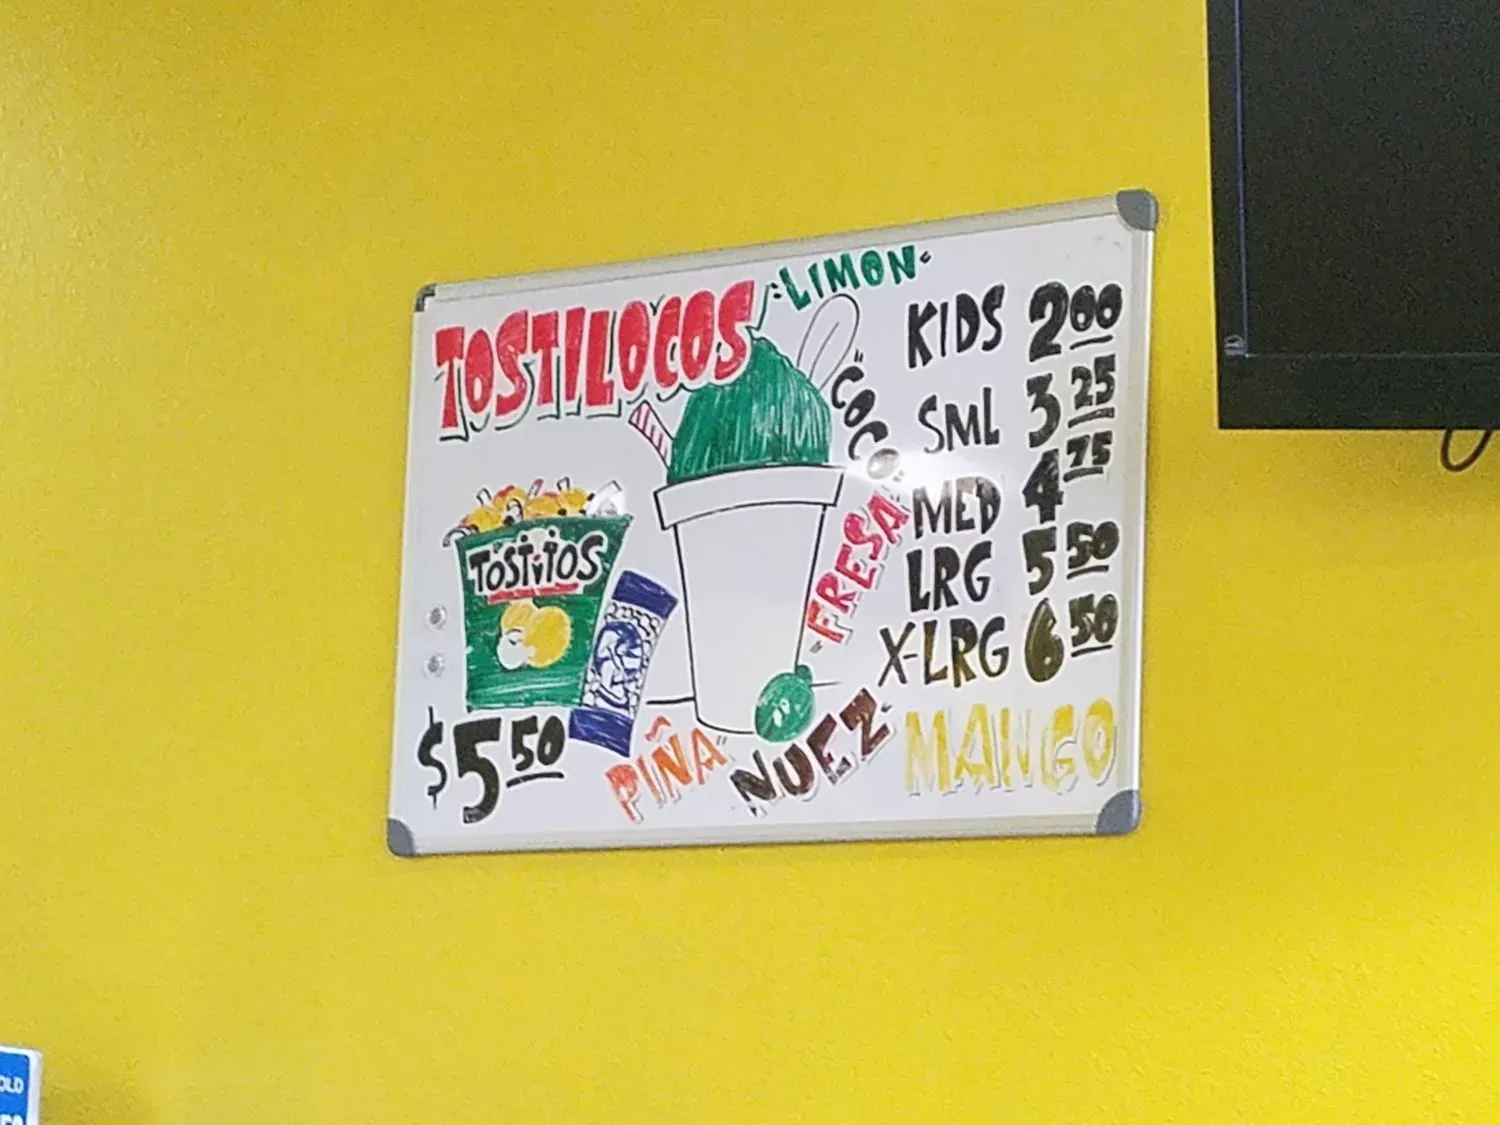 TOSTILOCOS
"LIMON"
"COCO"
"FRESA"
KIDS 2 00
SML 3 25
MED 4 75
LRG 5 50
X-LRG 6 50
TOSTITOS
$5 50
PIÑA"
NUEZ"
MANGO
OLD